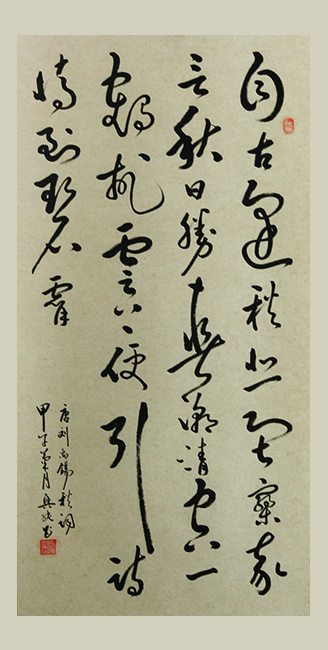 自古逢秋悲寂寥我
言秋日勝春朝晴空一
鶴排雲上便引詩
情到碧霄
唐刘禹锡秋词
甲午 月 书